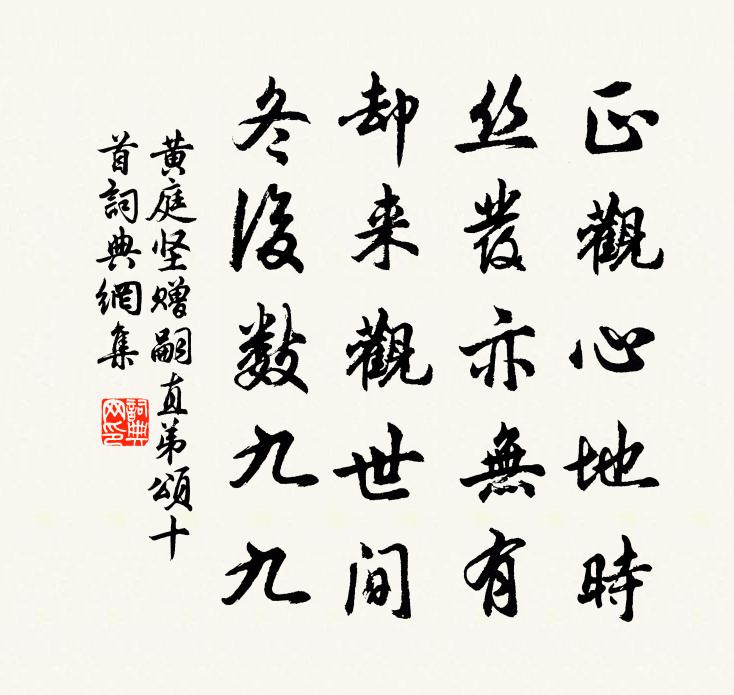 正觀心地時
丝發亦無有
却来觀世間
冬後数九九
黄庭坚赠嗣直弟頌十
首詞典網集
詞典
网印